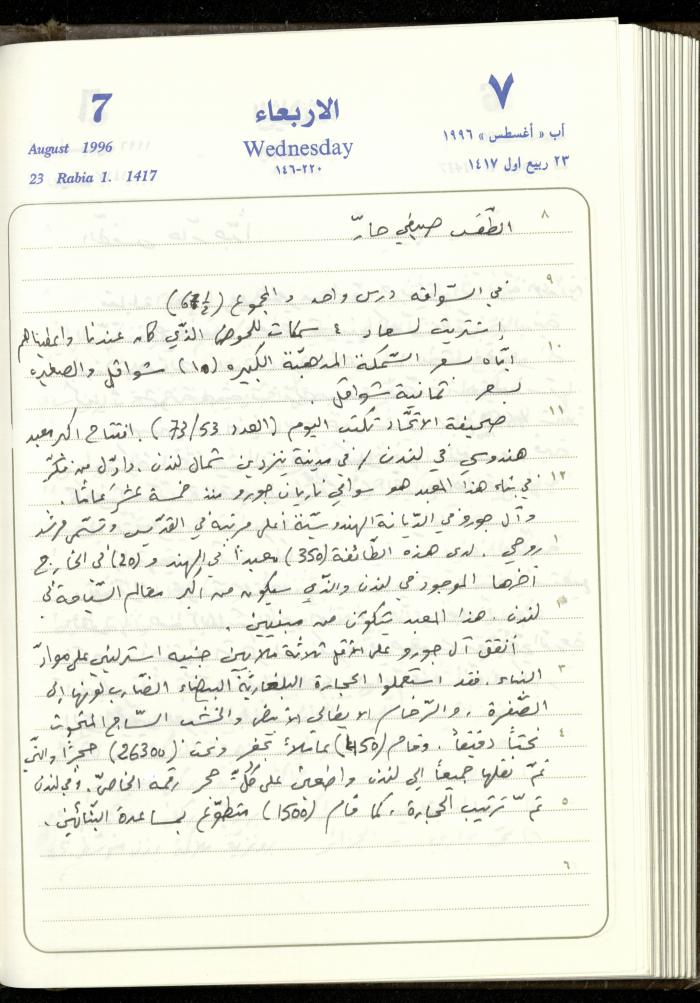 7
August 1996
23 Rabia 1. 1417
الاربعاء
Wednesday
١٤٦-٢٢٠
٧
آب « أغسطس » ١٩٩٦
٢٣ ربيع اول ١٤١٧
٨ الطّقس صيفي حارّ
٩
في السّواقه درس واحد والمجموع
إشتريت لسعاد ٤ سمكات للحوض الذّي كان عندنا واعطيناهم
١٠ ايّاه بسعر السّمكة المذهبّة الكبيره (١٥) شواقل والصغيره
بسعر ثمانية شواقل
١١ صحيفة الاتّحاد تكتب اليوم (العدد 73/53). افتتاح اكبر معبد
هندوسي في لندن / في مدينة نيزدين شمال لندن. واوّل من فكّر
١٢ في بناء هذا المعبد هو سوامي نارايان جورو منذ خمسة عشر عامًا.
وآل جورو في الدّيانة الهندوسيّة أعلى مرتبة في القدّيس وتسمّى مرشد
١ روحي. لدى هذه الطّائفة (350) معبداً في الهند و (20) في الخارج
آخرها الموجود في لندن والذّي سيكون من اكبر معالم السّياحة في
٢ لندن. هذا المعبد يتكوّن من مبنيين.
أنفق آل جورو على الأقل ثلاثة ملايين جنيه استرليني على موادّ
٣ البناء. فقد استعملوا الحجارة البلغاريّة البيضاء الضّارب لونها إلى
الصّفرة. والرّخام الايطالي الأبيض والخشب السّاج المنحوت
٤ نحتاً دقيقاً. وقام (1450) عاملاً بحفر ونحت (26300) حجرًا والتّي
تمّ نقلها جميعاً إلى لندن واضعين على كُلّ حجر رقمه الخاصّ. وفي لندن
٥ تمّ ترتيب الحجارة. كما قام (1500) متطوّع بمساعدة البنّائين.
٦